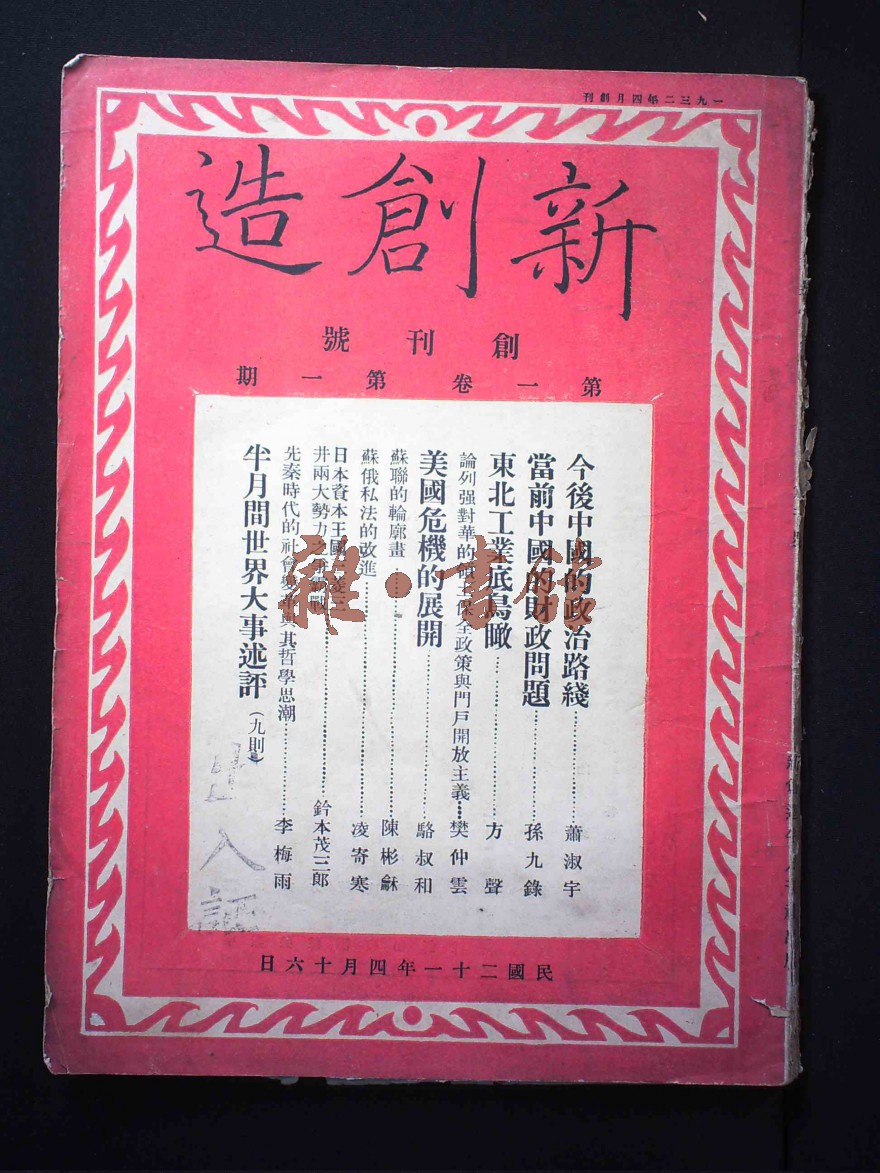 一九三二年四月創刊
新創造
創刊號
第一卷第一期
今後中國的政治路綫 蕭淑宇
當前中國的財政問題 孫九錄
東北工業底鳥瞰 方聲
論列强對華的領土保全政策與門戶開放主義 樊仲雲
美國危機的展開 駱叔和
蘇聯的輪廓畫 陳彬龢
蘇俄私法的改進 凌寄寒
日本資本王國三菱三
井兩大勢力之爭霸戰 鈴本茂三郎
先秦時代的社會變革與其哲學思潮 李梅雨
半月間世界大事述評(九則)
民國二十一年四月十六日
雜·書館